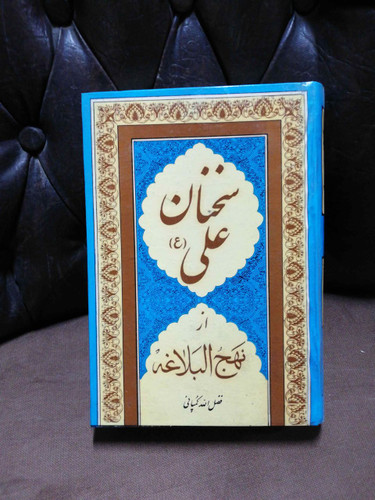 سخنان
علی (ع)
از
نهج البلاغه
فضل الله کمپانی